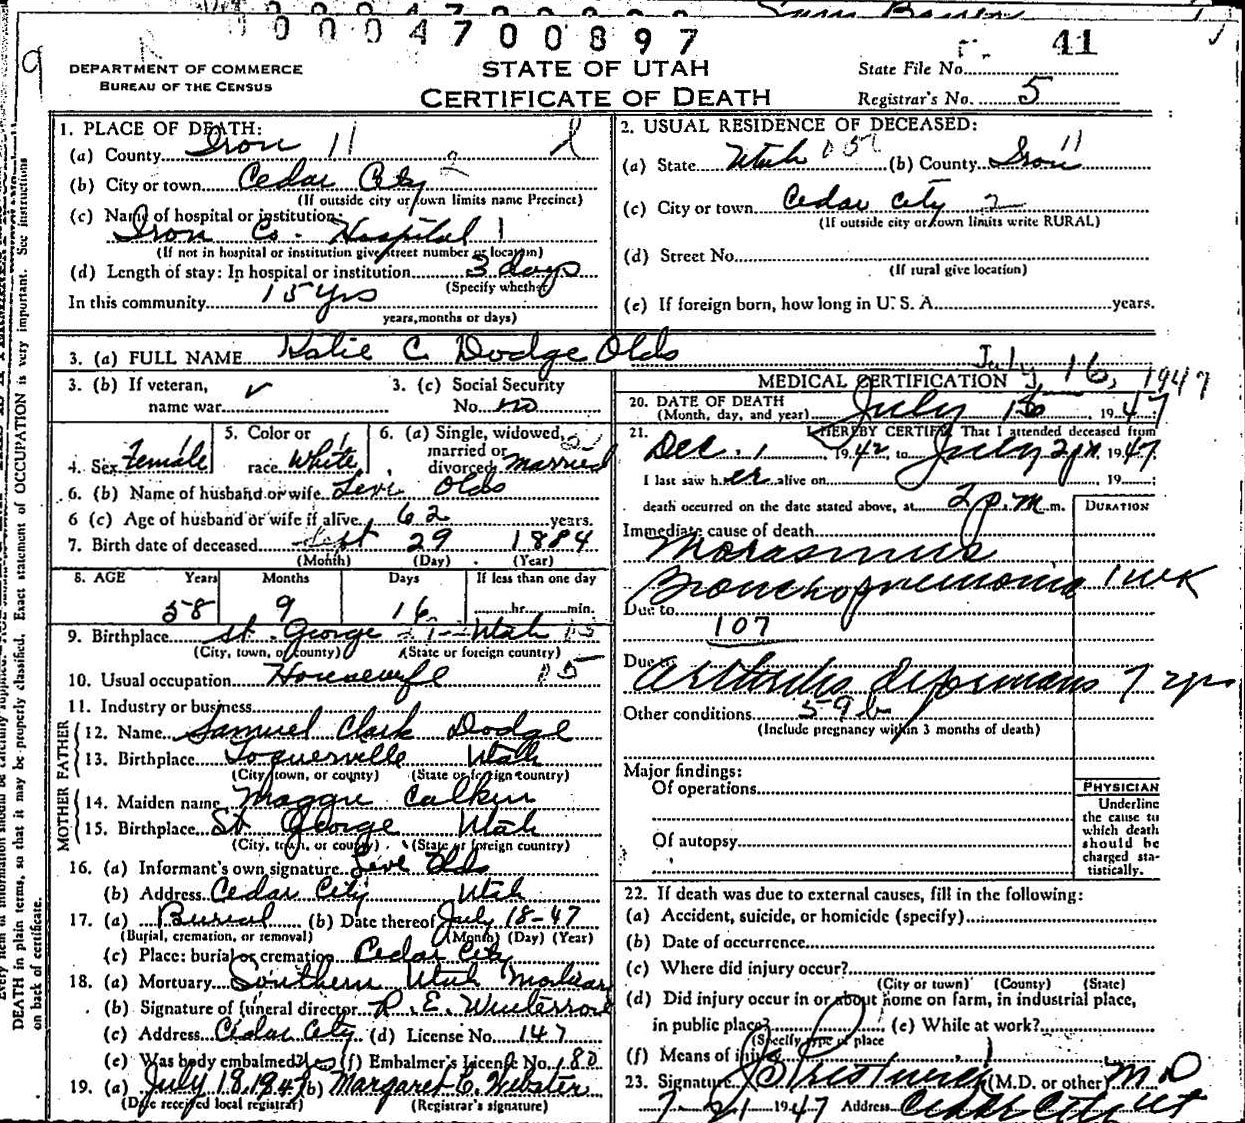 0 0 0 4 7 0 0 8 9 7
41
DEPARTMENT OF COMMERCE
BUREAU OF THE CENSUS
STATE OF UTAH
CERTIFICATE OF DEATH
State File No.
Registrar's No. 5
1. PLACE OF DEATH:
(a) County Iron 11
(b) City or town Cedar City 2
(If outside city or town limits name Precinct)
(c) Name of hospital or institution:
Iron Co. Hospital 1
(If not in hospital or institution give street number or location)
(d) Length of stay: In hospital or institution 3 days
(Specify whether
In this community 15 yrs
years, months or days)
2. USUAL RESIDENCE OF DECEASED:
(a) State Utah (b) County Iron 11
(c) City or town Cedar City 2
(If outside city or town limits write RURAL)
(d) Street No.
(If rural give location)
(e) If foreign born, how long in U. S. A. years.
3. (a) FULL NAME Katie C. Dodge Olds
3. (b) If veteran, name war
3. (c) Social Security No. no
4. Sex Female
5. Color or race White
6. (a) Single, widowed, married or divorced Married
6. (b) Name of husband or wife Levi Olds
6 (c) Age of husband or wife if alive 62 years.
7. Birth date of deceased Sept 29 1884
(Month) (Day) (Year)
8. AGE Years Months Days If less than one day
58 9 16 hr. min.
9. Birthplace St. George Utah
(City, town, or county) (State or foreign country)
10. Usual occupation Housewife
11. Industry or business
FATHER
12. Name Samuel Clark Dodge
13. Birthplace Toquerville Utah
(City, town, or county) (State or foreign country)
MOTHER
14. Maiden name Maggie Calkin
15. Birthplace St George Utah
(City, town, or county) (State or foreign country)
16. (a) Informant's own signature Levi Olds
(b) Address Cedar City Utah
17. (a) Burial (b) Date thereof July 18-47
(Burial, cremation, or removal) (Month) (Day) (Year)
(c) Place: burial or cremation Cedar City
18. (a) Mortuary Southern Utah Mortuary
(b) Signature of funeral director R. E. Winterrose
(c) Address Cedar City (d) License No. 147
(e) Was body embalmed? Yes (f) Embalmer's License No. 180
19. (a) July 18, 1947 (b) Margaret C. Webster
(Date received local registrar) (Registrar's signature)
July 16, 1947
MEDICAL CERTIFICATION
20. DATE OF DEATH
(Month, day, and year) July 16, 1947
21. I HEREBY CERTIFY That I attended deceased from
Dec. 1 1942 to July 1947
I last saw her alive on 19
death occurred on the date stated above, at 2 p.m. m.
DURATION
Immediate cause of death
Marasmus
Bronchopneumonia 1 wk
Due to
107
Due to
Arthritis deformans 7 yrs
Other conditions 59b
(Include pregnancy within 3 months of death)
Major findings:
Of operations
Of autopsy
PHYSICIAN
Underline
the cause to
which death
should be
charged sta-
tistically.
22. If death was due to external causes, fill in the following:
(a) Accident, suicide, or homicide (specify)
(b) Date of occurrence
(c) Where did injury occur?
(City or town) (County) (State)
(d) Did injury occur in or about home on farm, in industrial place,
in public place? (e) While at work?
(Specify type of place
(f) Means of injury
23. Signature J Prestwich (M.D. or other) M D
7-21 1947 Address Cedar City Ut
DEATH in plain terms, so that it may be properly classified. Exact statement of OCCUPATION is very important. See instructions
on back of certificate.